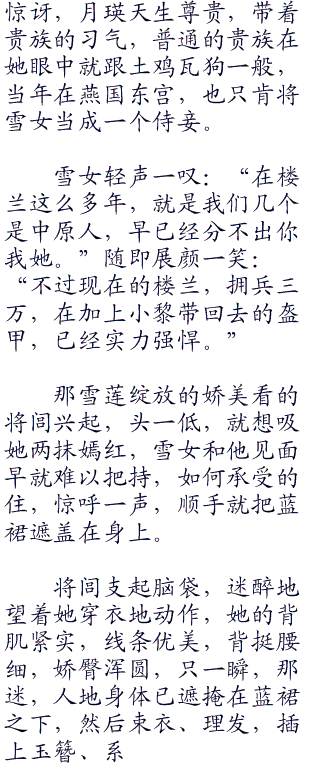 惊讶，月瑛天生尊贵，带着
贵族的习气，普通的贵族在
她眼中就跟土鸡瓦狗一般，
当年在燕国东宫，也只肯将
雪女当成一个侍妾。
雪女轻声一叹：“在楼
兰这么多年，就是我们几个
是中原人，早已经分不出你
我她。”随即展颜一笑：
“不过现在的楼兰，拥兵三
万，在加上小黎带回去的盔
甲，已经实力强悍。”
那雪莲绽放的娇美看的
将闾兴起，头一低，就想吸
她两抹嫣红，雪女和他见面
早就难以把持，如何承受的
住，惊呼一声，顺手就把蓝
裙遮盖在身上。
将闾支起脑袋，迷醉地
望着她穿衣地动作，她的背
肌紧实，线条优美，背挺腰
细，娇臀浑圆，只一瞬，那
迷，人地身体已遮掩在蓝裙
之下，然后束衣、理发，插
上玉簪、系